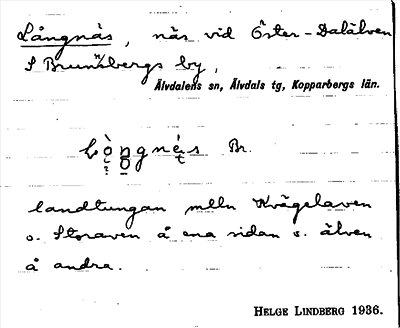 Långnäs, näs vid Öster-Dalälven
S Brunnsbergs by,
Älvdalens sn, Älvdals tg, Kopparbergs län.
Br.
landtungan mlln Kvägelaven
o. Storaven å ena sidan o. älven
å andra.
HELGE LINDBERG 1936.